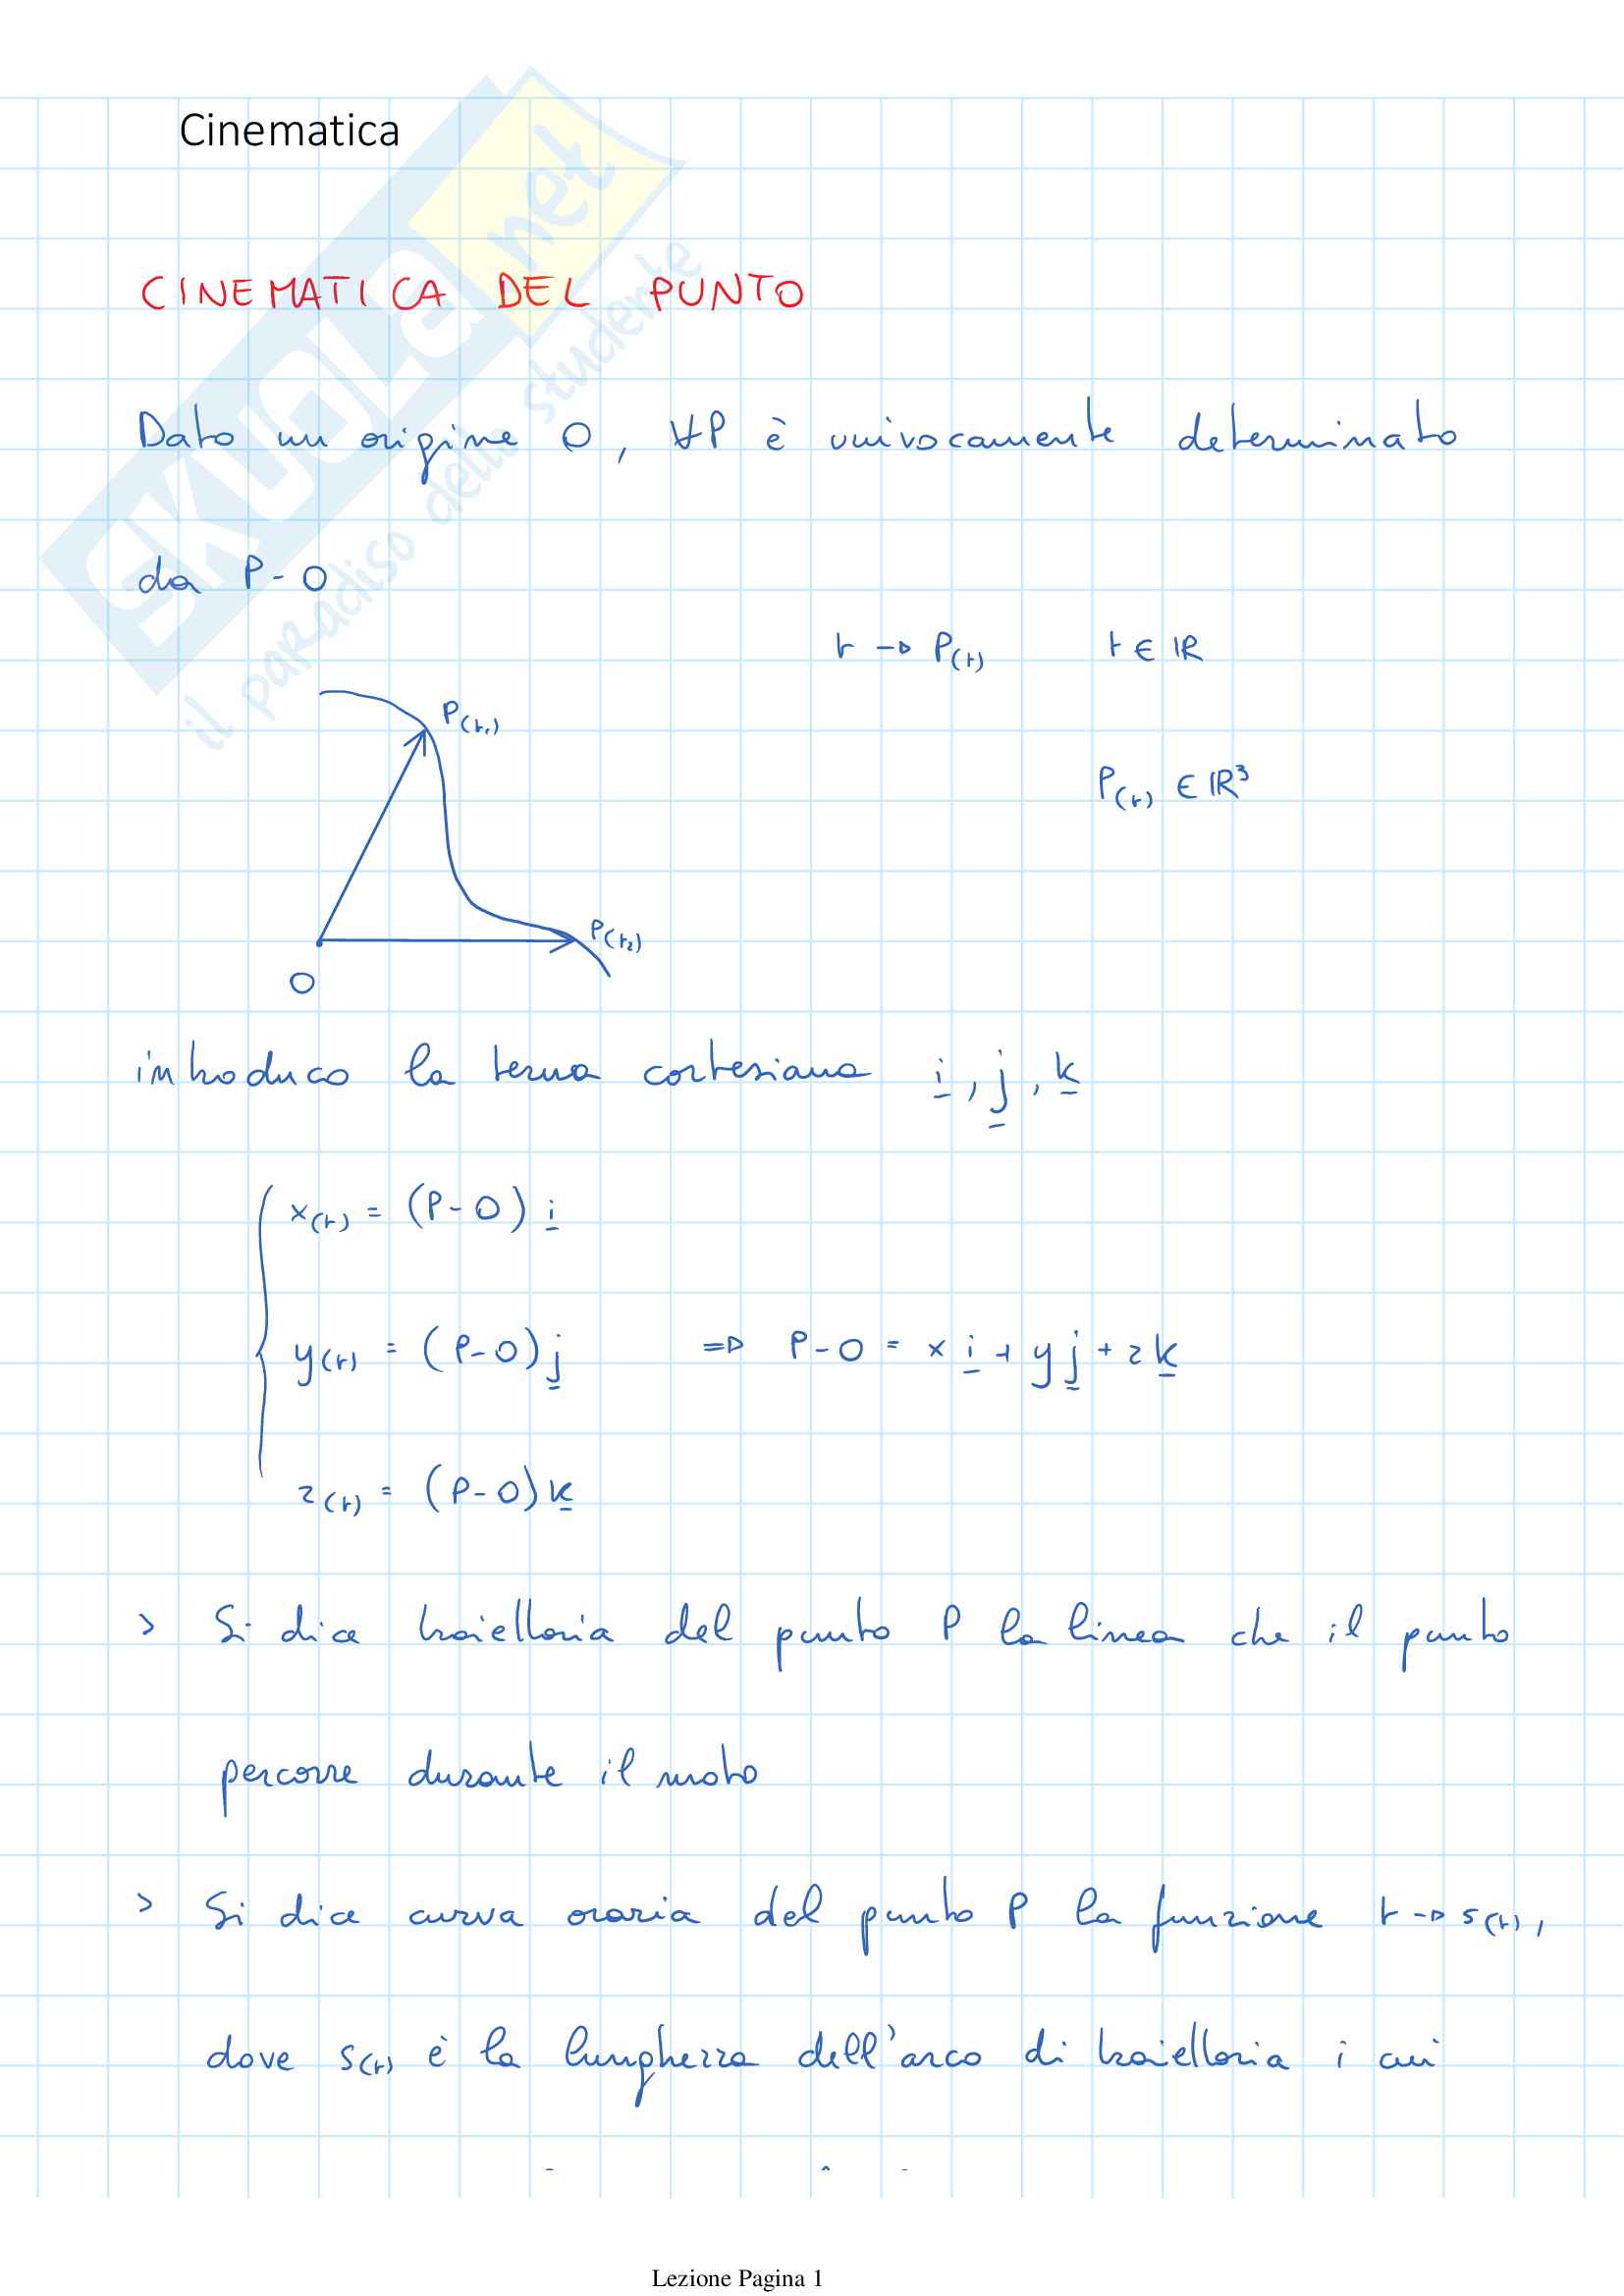 Cinematica
SKUOLa.net
il paradiso dello studente
CINEMATICA DEL PUNTO
Dato un origine O, ∀P è univocamente determinato
da P-O
t → P(t) t ∈ ℝ
P(t1)
P(t) ∈ ℝ³
P(t2)
O
introduco la terna cartesiana i, j, k
x(t) = (P-O) i
y(t) = (P-O) j ⇒ P-O = x i + y j + z k
z(t) = (P-O) k
> Si dice traiettoria del punto P la linea che il punto
percorre durante il moto
> Si dice curva oraria del punto P la funzione t → s(t),
dove s(t) è la lunghezza dell'arco di traiettoria i cui
Lezione Pagina 1